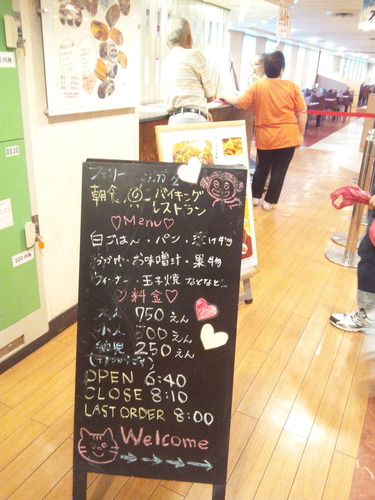 朝食 バイキング
レストラン
♡Menu♡
白ごはん・パン・漬け物
おかゆ・お味噌汁・果物
ウィンナー・玉子焼 などなど…
♡料金♡
大人 750えん
小人 500えん
幼児 250えん
OPEN 6:40
CLOSE 8:10
LAST ORDER 8:00
Welcome